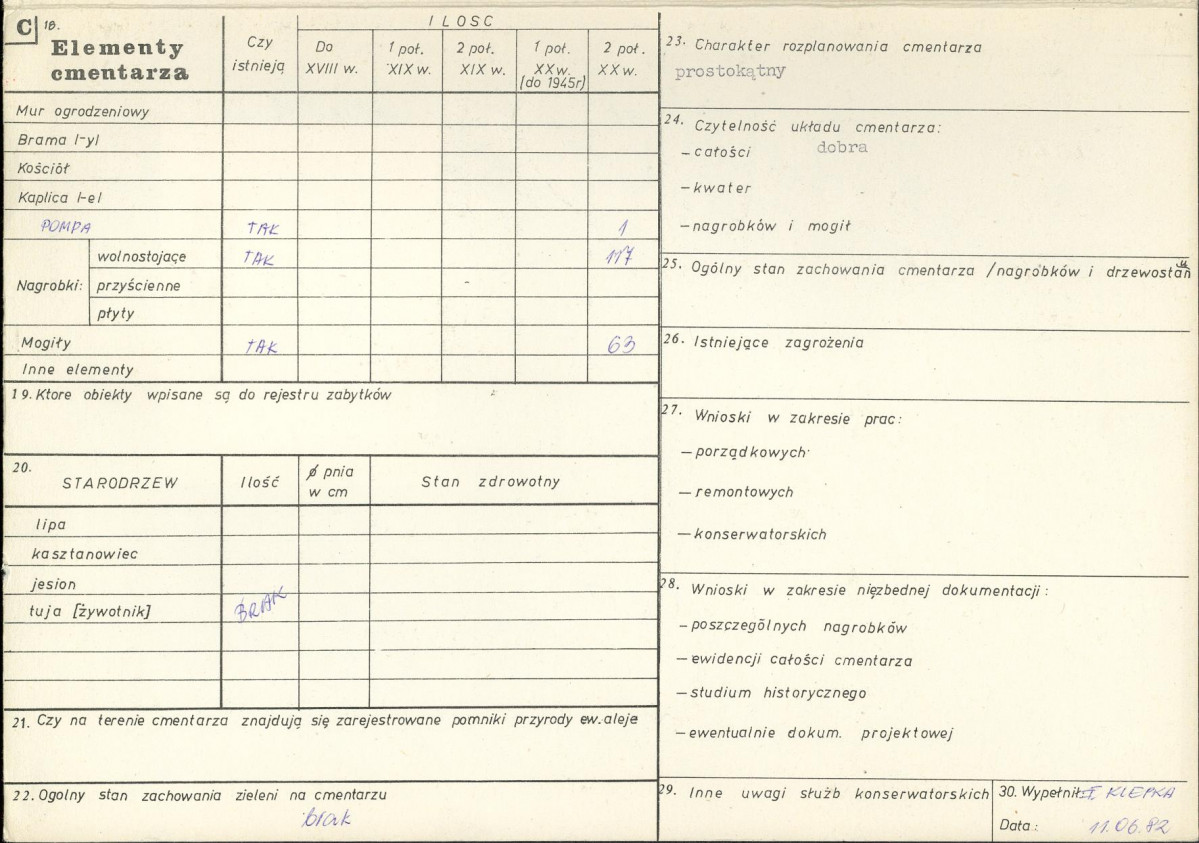 C 18.
Elementy
cmentarza
Czy
istnieją
ILOSC
Do
XVIII w.
1 poł.
XIX w.
2 poł.
XIX w.
1 poł.
XX w.
(do 1945r)
2 poł.
XX w.
Mur ogrodzeniowy
Brama l-yl
Kościół
Kaplica l-el
POMPA TAK 1
Nagrobki:
wolnostojące TAK 117
przyścienne
płyty
Mogiły TAK 63
Inne elementy
19. Ktore obiekty wpisane są do rejestru zabytków
20.
STARODRZEW
Ilość
ϕ pnia
w cm
Stan zdrowotny
lipa
kasztanowiec
jesion
tuja [żywotnik] BRAK
21. Czy na terenie cmentarza znajdują się zarejestrowane pomniki przyrody ew. aleje
22. Ogolny stan zachowania zieleni na cmentarzu
brak
23. Charakter rozplanowania cmentarza
prostokątny
24. Czytelność układu cmentarza:
— całości dobra
— kwater
— nagrobków i mogił
25. Ogólny stan zachowania cmentarza /nagrobków i drzewostan
26. Istniejące zagrożenia
27. Wnioski w zakresie prac:
— porządkowych
— remontowych
— konserwatorskich
28. Wnioski w zakresie nięzbednej dokumentacji:
— poszczególnych nagrobków
— ewidencji całości cmentarza
— studium historycznego
— ewentualnie dokum. projektowej
29. Inne uwagi służb konserwatorskich
30. Wypełnił: KLEPKA
Data: 11.06.82